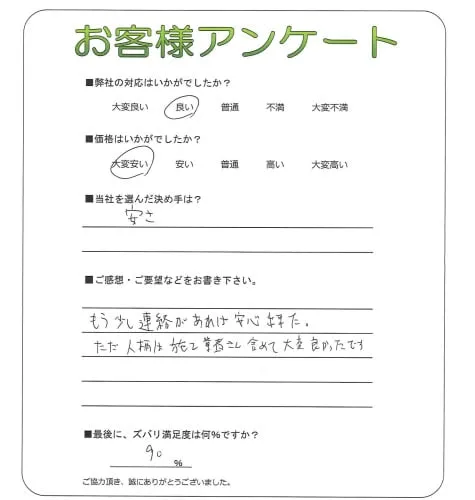 お客様アンケート
■弊社の対応はいかがでしたか?
大変良い 良い 普通 不満 大変不満
■価格はいかがでしたか?
大変安い 安い 普通 高い 大変高い
■当社を選んだ決め手は?
安さ
■ご感想・ご要望などをお書き下さい。
もう少し連絡があれば安心出来た。
ただ人柄は施工業者さん含めて大変良かったです
■最後に、ズバリ満足度は何%ですか?
90 %
ご協力頂き、誠にありがとうございました。